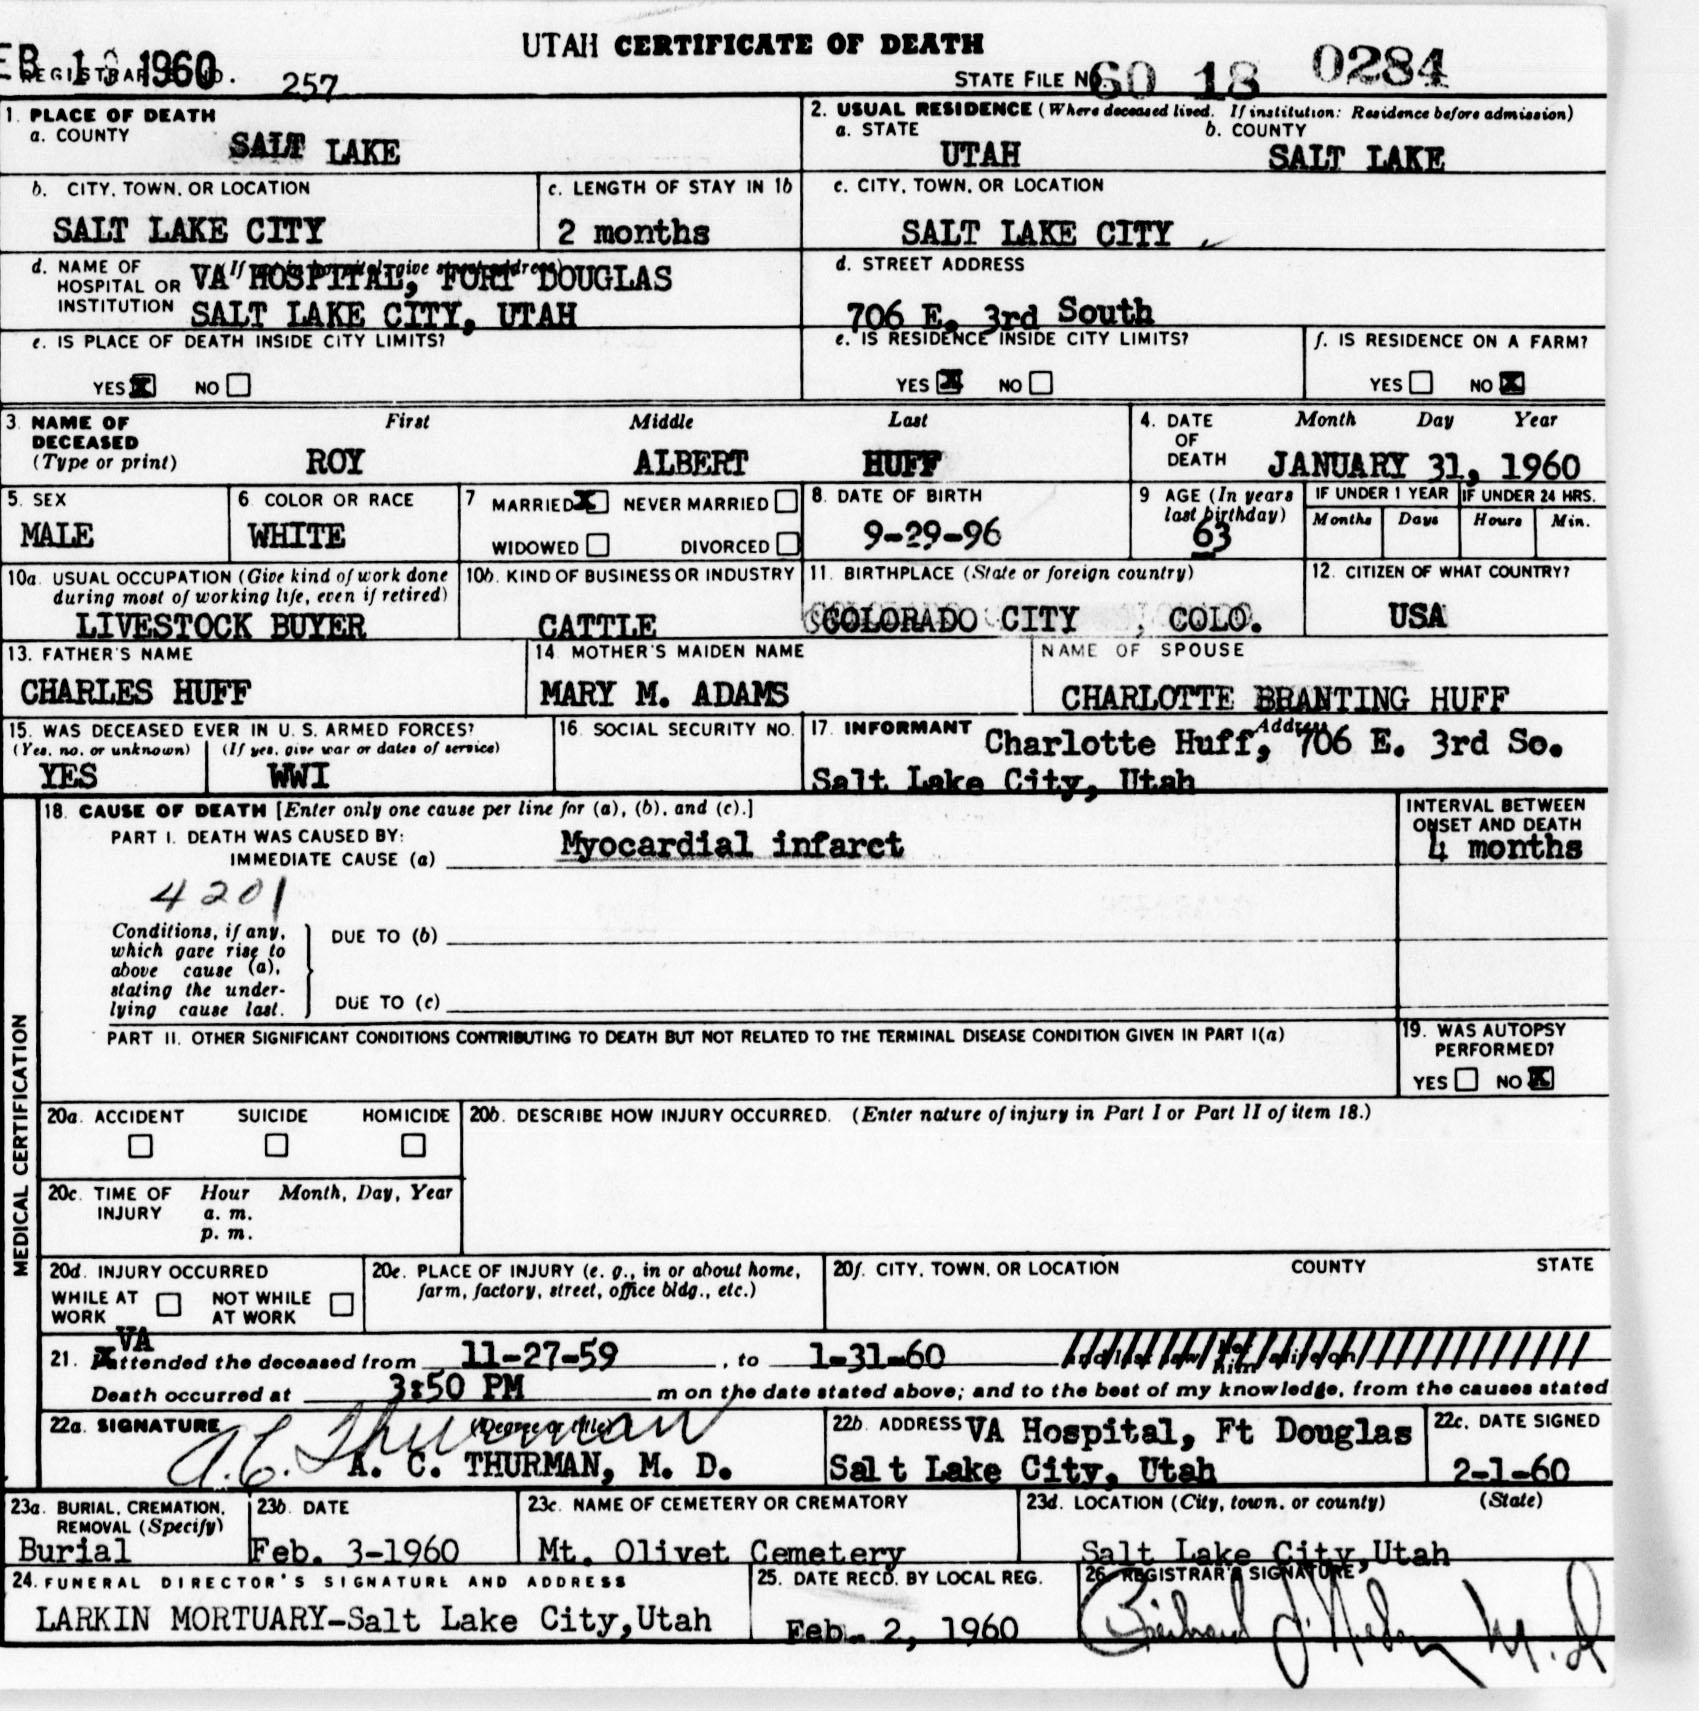 UTAH CERTIFICATE OF DEATH
EB 1 1960
REGISTRAR NO. 257
STATE FILE NO. 60 18 0284
1. PLACE OF DEATH
a. COUNTY
SALT LAKE
2. USUAL RESIDENCE (Where deceased lived. If institution: Residence before admission)
a. STATE b. COUNTY
UTAH SALT LAKE
b. CITY, TOWN, OR LOCATION
SALT LAKE CITY
c. LENGTH OF STAY IN 1b
2 months
c. CITY, TOWN, OR LOCATION
SALT LAKE CITY
d. NAME OF HOSPITAL OR INSTITUTION
VA HOSPITAL, FORT DOUGLAS
SALT LAKE CITY, UTAH
d. STREET ADDRESS
706 E. 3rd South
e. IS PLACE OF DEATH INSIDE CITY LIMITS?
YES X NO
e. IS RESIDENCE INSIDE CITY LIMITS?
YES X NO
f. IS RESIDENCE ON A FARM?
YES NO X
3. NAME OF DECEASED (Type or print)
First Middle Last
ROY ALBERT HUFF
4. DATE OF DEATH
Month Day Year
JANUARY 31, 1960
5. SEX
MALE
6. COLOR OR RACE
WHITE
7 MARRIED X NEVER MARRIED
WIDOWED DIVORCED
8. DATE OF BIRTH
9-29-96
9 AGE (In years last birthday)
63
IF UNDER 1 YEAR
Months Days
IF UNDER 24 HRS.
Hours Min.
10a. USUAL OCCUPATION (Give kind of work done
during most of working life, even if retired)
LIVESTOCK BUYER
10b. KIND OF BUSINESS OR INDUSTRY
CATTLE
11. BIRTHPLACE (State or foreign country)
COLORADO CITY , COLO.
12. CITIZEN OF WHAT COUNTRY?
USA
13. FATHER'S NAME
CHARLES HUFF
14 MOTHER'S MAIDEN NAME
MARY M. ADAMS
NAME OF SPOUSE
CHARLOTTE BRANTING HUFF
15. WAS DECEASED EVER IN U. S. ARMED FORCES?
(Yes, no, or unknown) (If yes, give war or dates of service)
YES WWI
16. SOCIAL SECURITY NO.
17. INFORMANT Address
Charlotte Huff, 706 E. 3rd So.
Salt Lake City, Utah
MEDICAL CERTIFICATION
18. CAUSE OF DEATH [Enter only one cause per line for (a), (b), and (c).]
PART I. DEATH WAS CAUSED BY:
IMMEDIATE CAUSE (a) Myocardial infarct
INTERVAL BETWEEN
ONSET AND DEATH
4 months
4201
Conditions, if any,
which gave rise to
above cause (a),
stating the under-
lying cause last.
DUE TO (b)
DUE TO (c)
PART II. OTHER SIGNIFICANT CONDITIONS CONTRIBUTING TO DEATH BUT NOT RELATED TO THE TERMINAL DISEASE CONDITION GIVEN IN PART I(a)
19. WAS AUTOPSY
PERFORMED?
YES NO X
20a. ACCIDENT SUICIDE HOMICIDE
20b. DESCRIBE HOW INJURY OCCURRED. (Enter nature of injury in Part I or Part II of item 18.)
20c. TIME OF INJURY
Hour Month, Day, Year
a. m.
p. m.
20d. INJURY OCCURRED
WHILE AT WORK NOT WHILE AT WORK
20e. PLACE OF INJURY (e. g., in or about home,
farm, factory, street, office bldg., etc.)
20f. CITY, TOWN, OR LOCATION COUNTY STATE
VA
21. attended the deceased from 11-27-59, to 1-31-60
Death occurred at 3:50 PM m on the date stated above; and to the best of my knowledge, from the causes stated
22a. SIGNATURE (Degree or title)
A. C. Thurman
A. C. THURMAN, M. D.
22b. ADDRESS
VA Hospital, Ft Douglas
Salt Lake City, Utah
22c. DATE SIGNED
2-1-60
23a. BURIAL, CREMATION,
REMOVAL (Specify)
Burial
23b. DATE
Feb. 3-1960
23c. NAME OF CEMETERY OR CREMATORY
Mt. Olivet Cemetery
23d. LOCATION (City, town, or county) (State)
Salt Lake City, Utah
24. FUNERAL DIRECTOR'S SIGNATURE AND ADDRESS
LARKIN MORTUARY-Salt Lake City, Utah
25. DATE RECD. BY LOCAL REG.
Feb. 2, 1960
26. REGISTRAR'S SIGNATURE
M.D